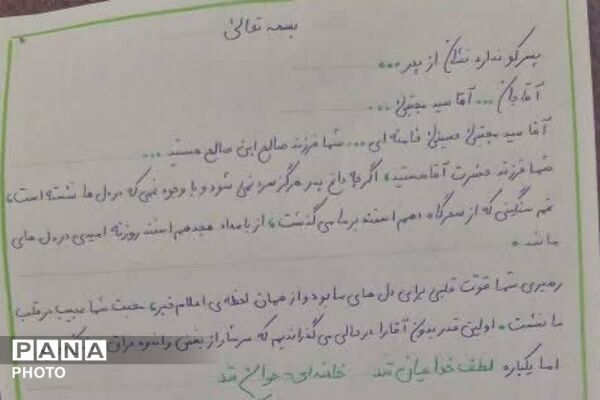 بسمه تعالی
پسر کو ندارد نشان از پدر ...
آقاجان ... آقا سید مجتبی ...
آقا سید مجتبی حسینی خامنه ای ... شما فرزند صالح ابن صالح هستید ...
شما فرزند حضرت آقا هستید، اگرچه داغ پدر هرگز سرد نمی شود و با وجود غمی که در دل ها نشسته است،
غم سنگینی که از سحرگاه دهم اسفند بر ما می گذشت، از بامداد هجدهم اسفند روزنه امیدی در دل های
ما شد.
رهبری شما قوت قلبی برای دل های ما بود و از همان لحظه ی اعلام خبر، محبت شما عجیب در قلب
ما نشست. اولین قدر بدون آقا را در حالی می گذراندیم که سرشار از بغض و اندوه فراق
اما یکباره لطف خدا عیان شد خامنه ای جوان شد
PANA
PHOTO